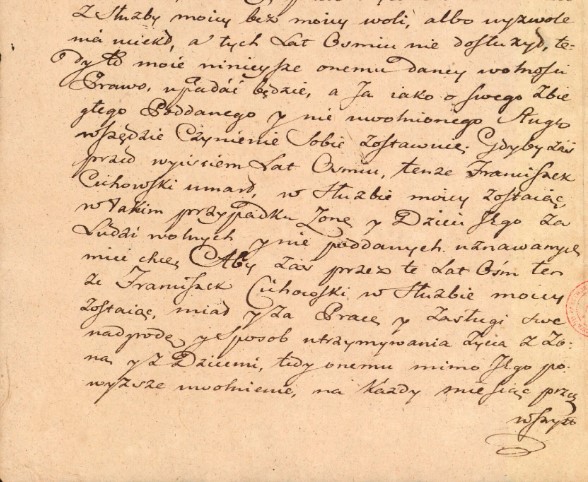 z Służby moiey bez moiey woli, albo wyzwole
nia uciekł, a tych Lat Osmiu nie dosłużył, te
dy to moie ninieysze onemu daney wolności
Prawo, upadać będzie, a Ja iako o swego Zbie
głego Poddanego y nie uwolnionego Sługę
wszędzie Czynienie Sobie Zostawuię; Gdyby zaś
przed wyiściem Lat Osmiu, tenże Franciszek
Cichowski umarł, w Służbie moiey zostaiąc,
w takim przypadku Zonę y Dzieci Jego Za
Ludzi wolnych y nie poddanych uznawanych
mieć chcę, Aby zaś przez te Lat Ośm ten
że Franciszek Cichowski w Służbie moiey
zostaiąc, miał y za Pracę y Zasługi swe
nadgrodę y sposob utrzymywania Życia z Żo-
ną y z Dziecmi, tedy onemu mimo Jego po-
wyższe uwolnienie, na Każdy miesiąc przez
wszyst